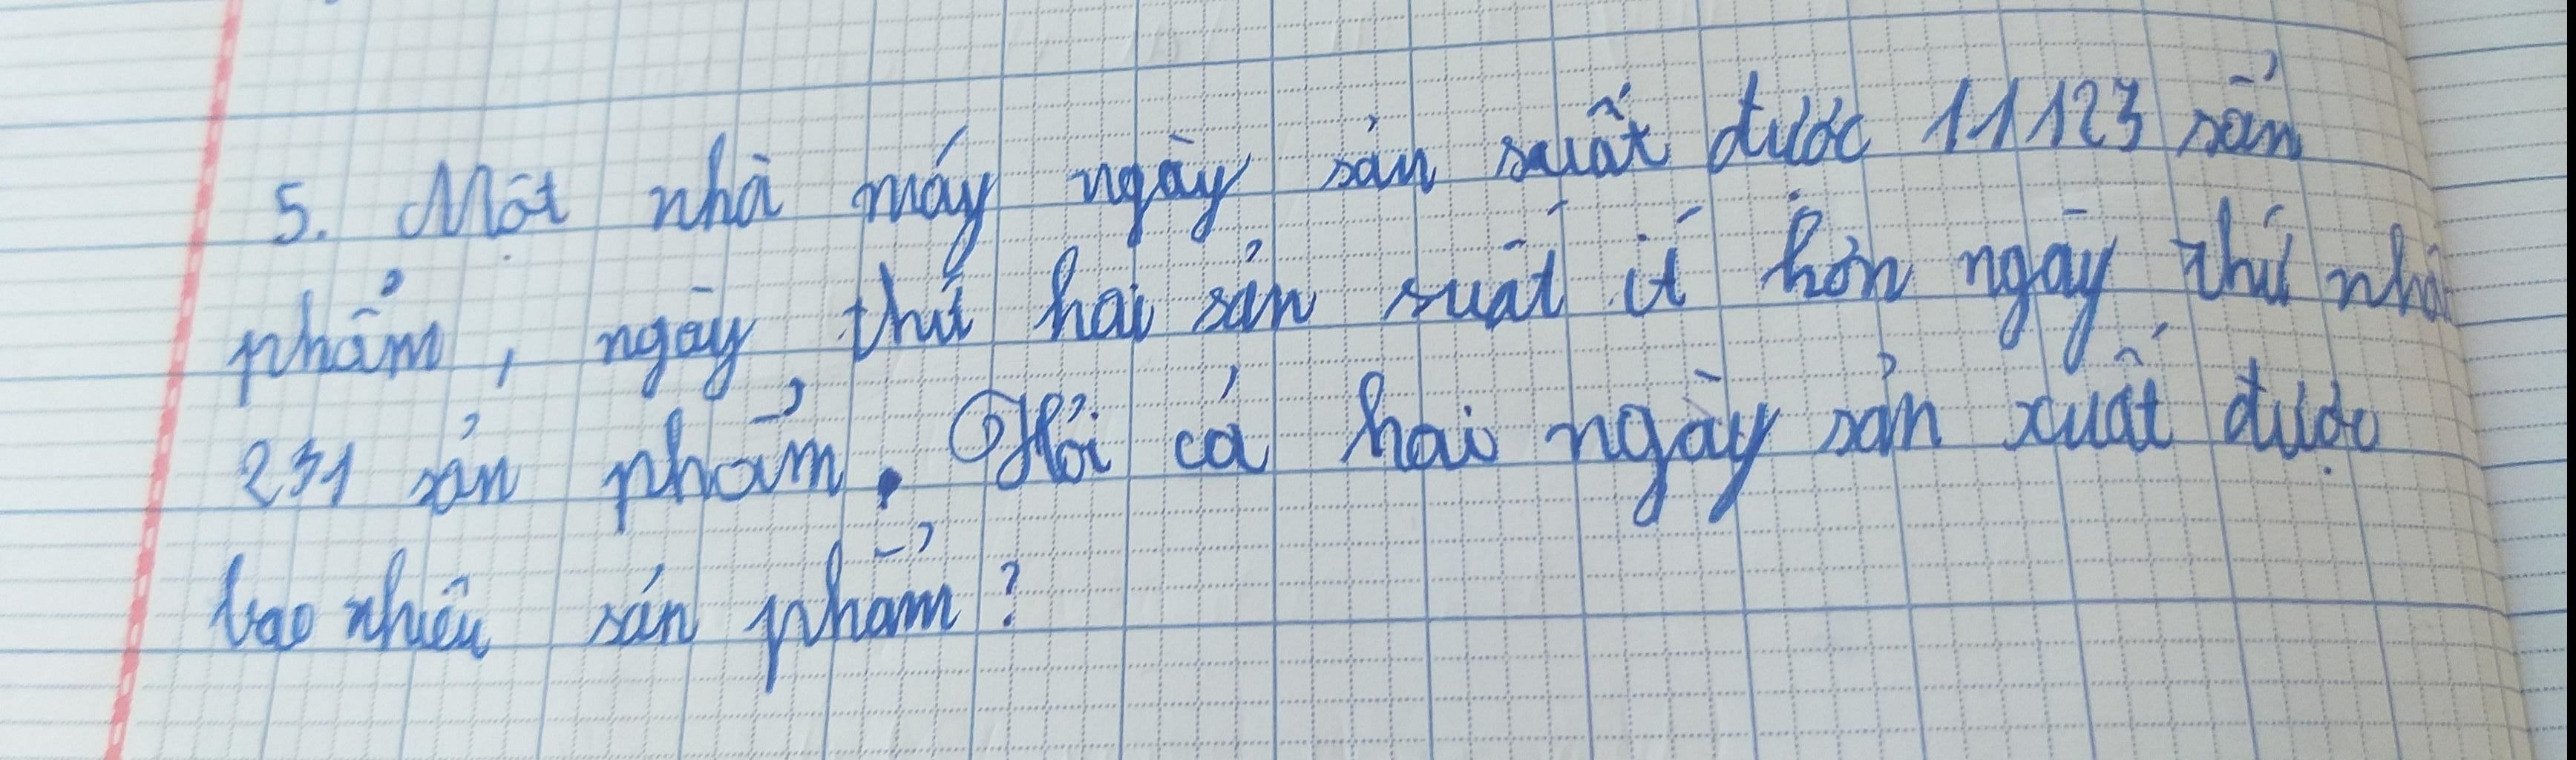 5. Một nhà máy ngày sản suất được 11123 sản
phẩm, ngày thứ hai sản suất ít hơn ngày thứ nhất
231 sản phẩm. Hỏi cả hai ngày sản xuất được
bao nhiêu sản phẩm?